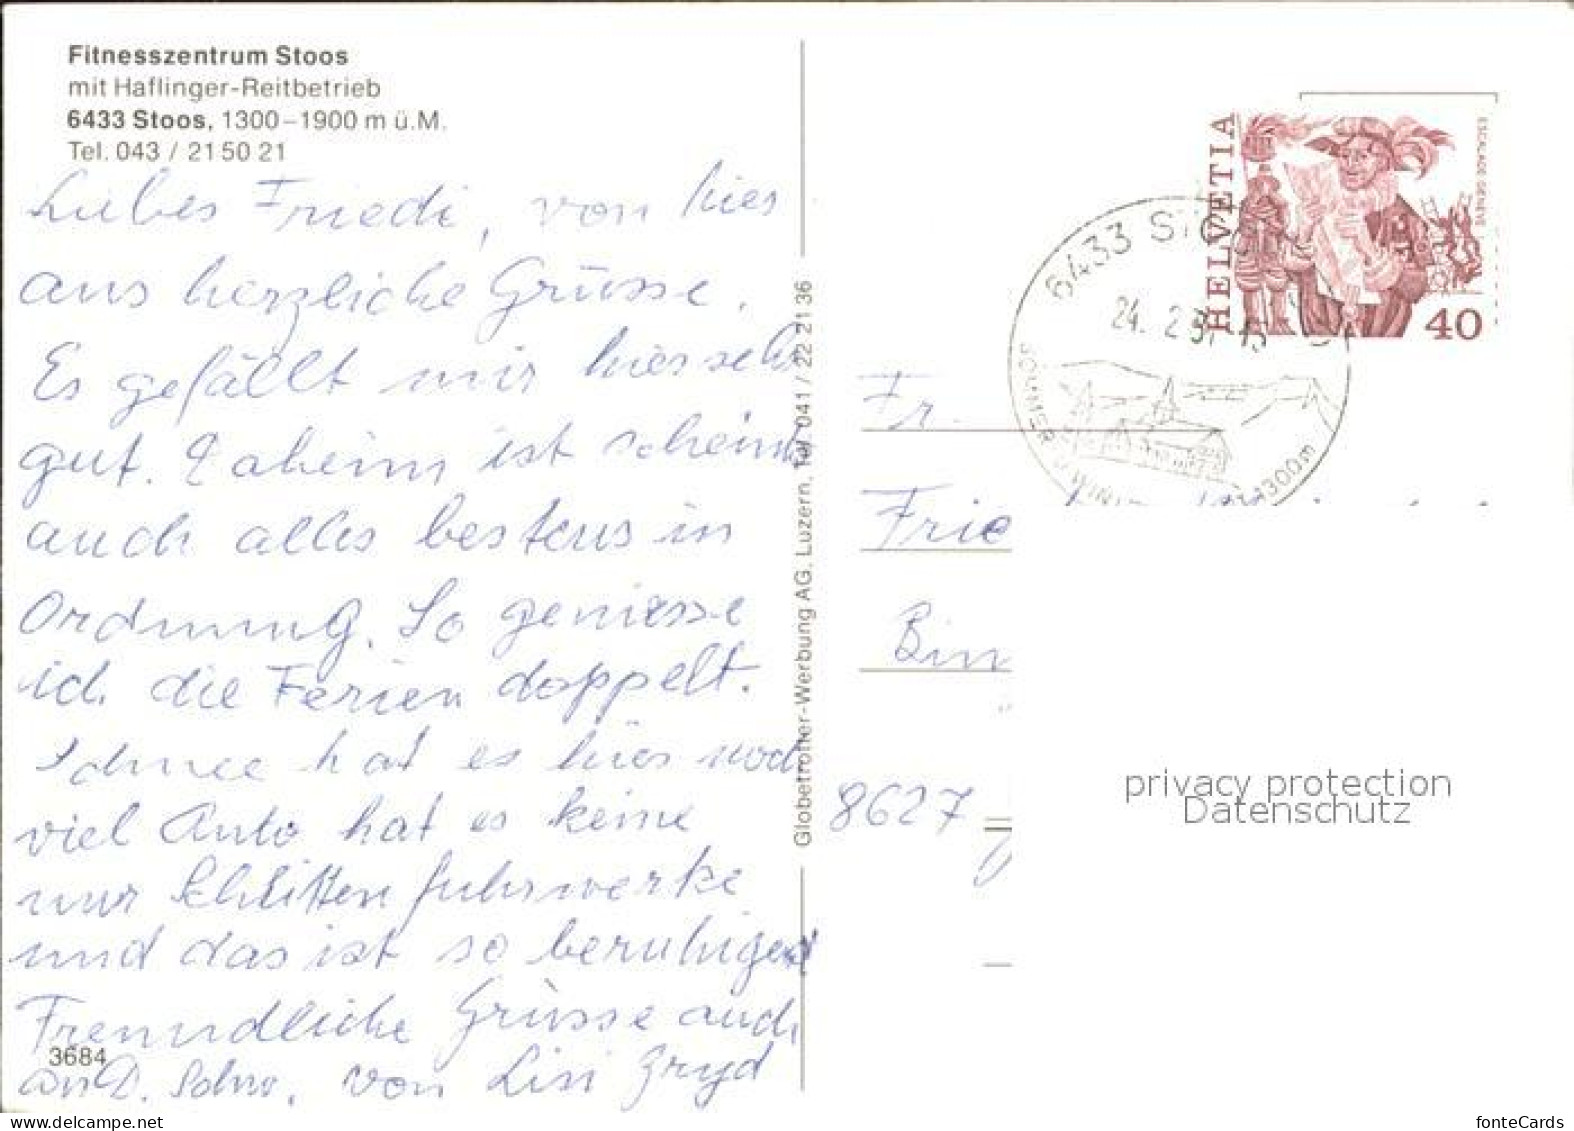 Fitnesszentrum Stoos
mit Haflinger-Reitbetrieb
6433 Stoos, 1300–1900 m ü.M.
Tel. 043 / 21 50 21
Liebes Friedi, von hier
aus herzliche Grüsse.
Es gefällt mir hier sehr
gut. Daheim ist scheints
auch alles bestens in
Ordnung. So geniesse
ich die Ferien doppelt.
Schnee hat es hier noch
viel Auto hat es keine
nur Schlitten fuhrwerke
und das ist so beruhigend
Freundliche Grüsse auch
an D. Sohn, von Lisi Zryd
3684
Globetrotter-Werbung AG, Luzern, Tel. 041 / 22 21 36
HELVETIA
ESCALADE GENÈVE
40
6433 STOOS
24. 2
1300m
Fr.
Frie
Bin
8627
privacy protection
Datenschutz
fonteCards